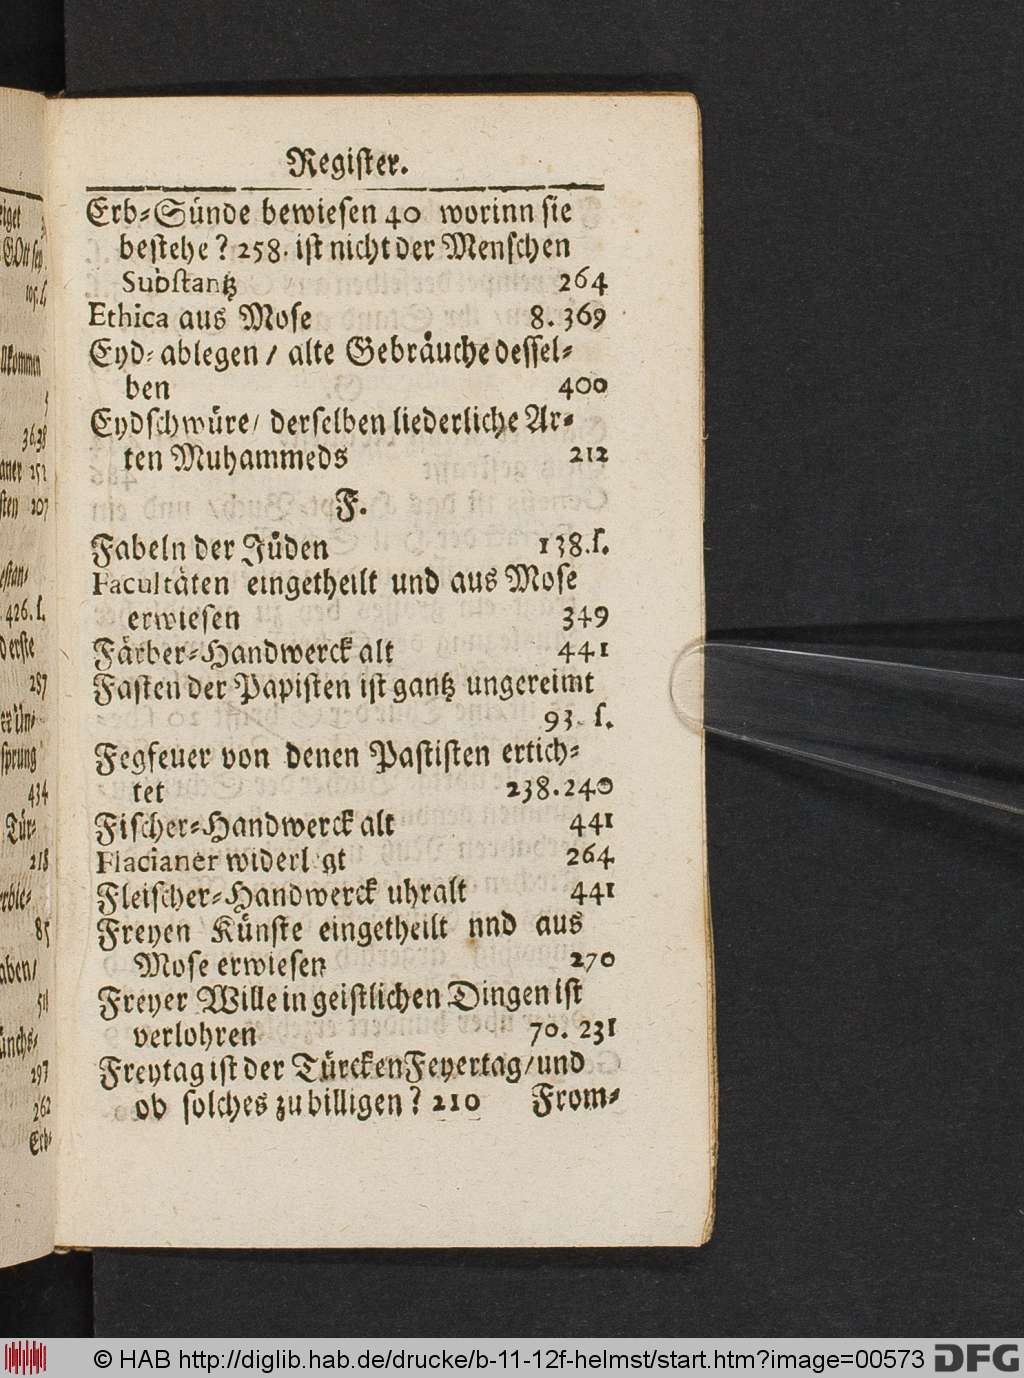 Register.
Erb-Sünde bewiesen 40 worinn sie
bestehe? 258. ist nicht der Menschen
Substantz 264
Ethica aus Mose 8. 369
Eyd-ablegen / alte Gebräuche dessel-
ben 400
Eydschwüre / derselben liederliche Ar-
ten Muhammeds 212
F.
Fabeln der Jüden 138.f.
Facultäten eingetheilt und aus Mose
erwiesen 349
Färber-Handwerck alt 441
Fasten der Papisten ist gantz ungereimt
93. f.
Fegfeuer von denen Pastisten ertich-
tet 238.240
Fischer-Handwerck alt 441
Flacianer widerl gt 264
Fleischer-Handwerck uhralt 441
Freyen Künste eingetheilt nnd aus
Mose erwiesen 270
Freyer Wille in geistlichen Dingen ist
verlohren 70. 231
Freytag ist der Türcken Feyertag / und
ob solches zu billigen? 210 From-
36.38
252
207
426. f.
derste
287
sprung
434
Tür-
218
85
aben/
297
262
Erb-
© HAB http://diglib.hab.de/drucke/b-11-12f-helmst/start.htm?image=00573 DFG